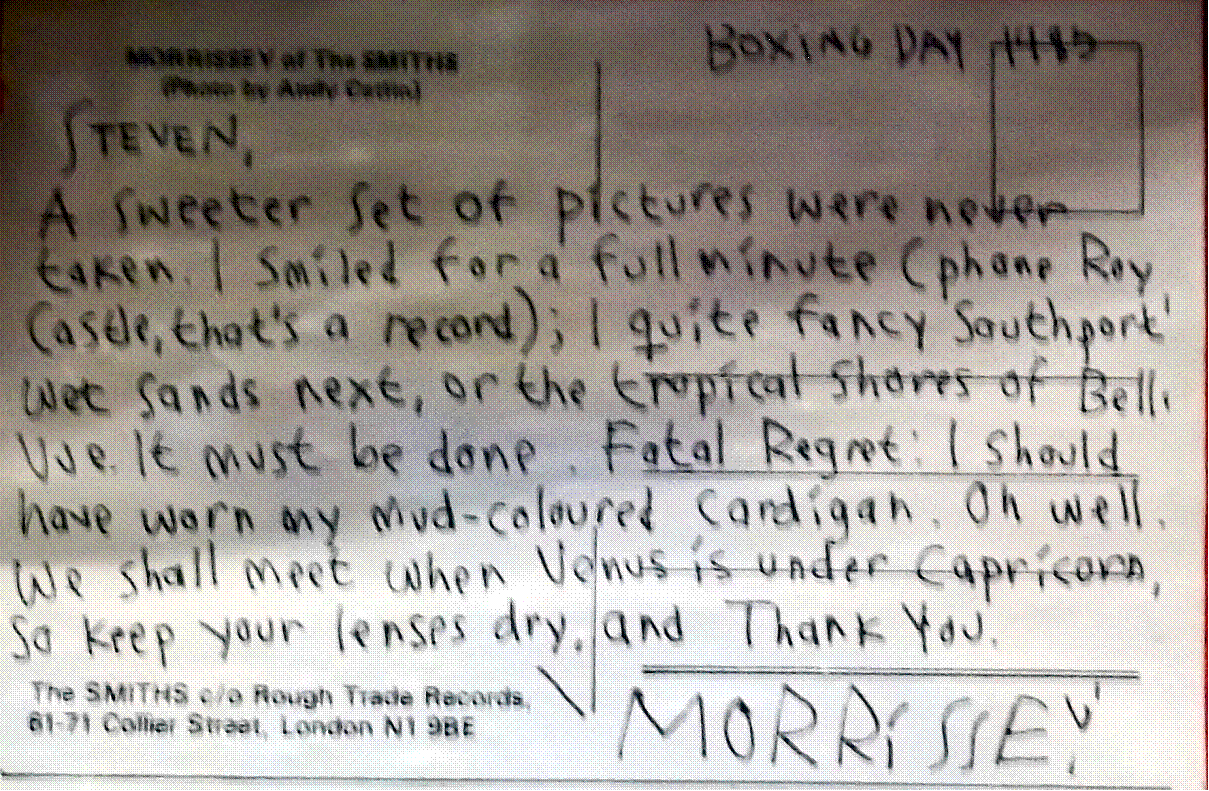 MORRISSEY of The SMITHS
(Photo by Andy Catlin)
BOXING DAY 1485
STEVEN,
A sweeter set of pictures were never
taken. I smiled for a full minute (phone Roy
Castle, that's a record); I quite fancy Southport'
wet sands next, or the tropical shores of Bell
Vue. It must be done. Fatal Regret: I should
have worn my mud-coloured cardigan. Oh well.
We shall meet when Venus is under Capricorn,
so keep your lenses dry, and Thank You.
The SMITHS c/o Rough Trade Records,
61-71 Collier Street, London N1 9BE
MORRiSSEY